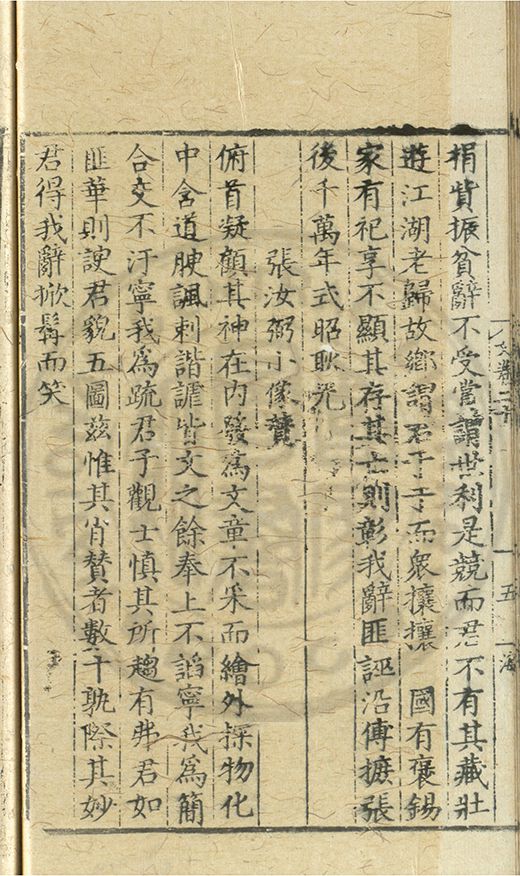 捐貲振貧辭不受當謂世利是競而君不有其藏壯
遊江湖老歸故鄉謂君于于而衆攘攘　國有褒錫
家有祀享不顯其存其亡則彰我辭匪誣沿傳摭張
後千萬年式昭耿光
張汝弼小像贊
俯首凝顧其神在內發爲文章不采而繪外探物化
中含道腴諷刺諧謔皆文之餘奉上不謟寧我爲簡
合交不汙寧我爲疏君子觀士慎其所趨有弗君如
匪華則諛君貌五圖茲惟其肖贊者數十孰際其妙
君得我辭掀髯而笑
文卷二十
五